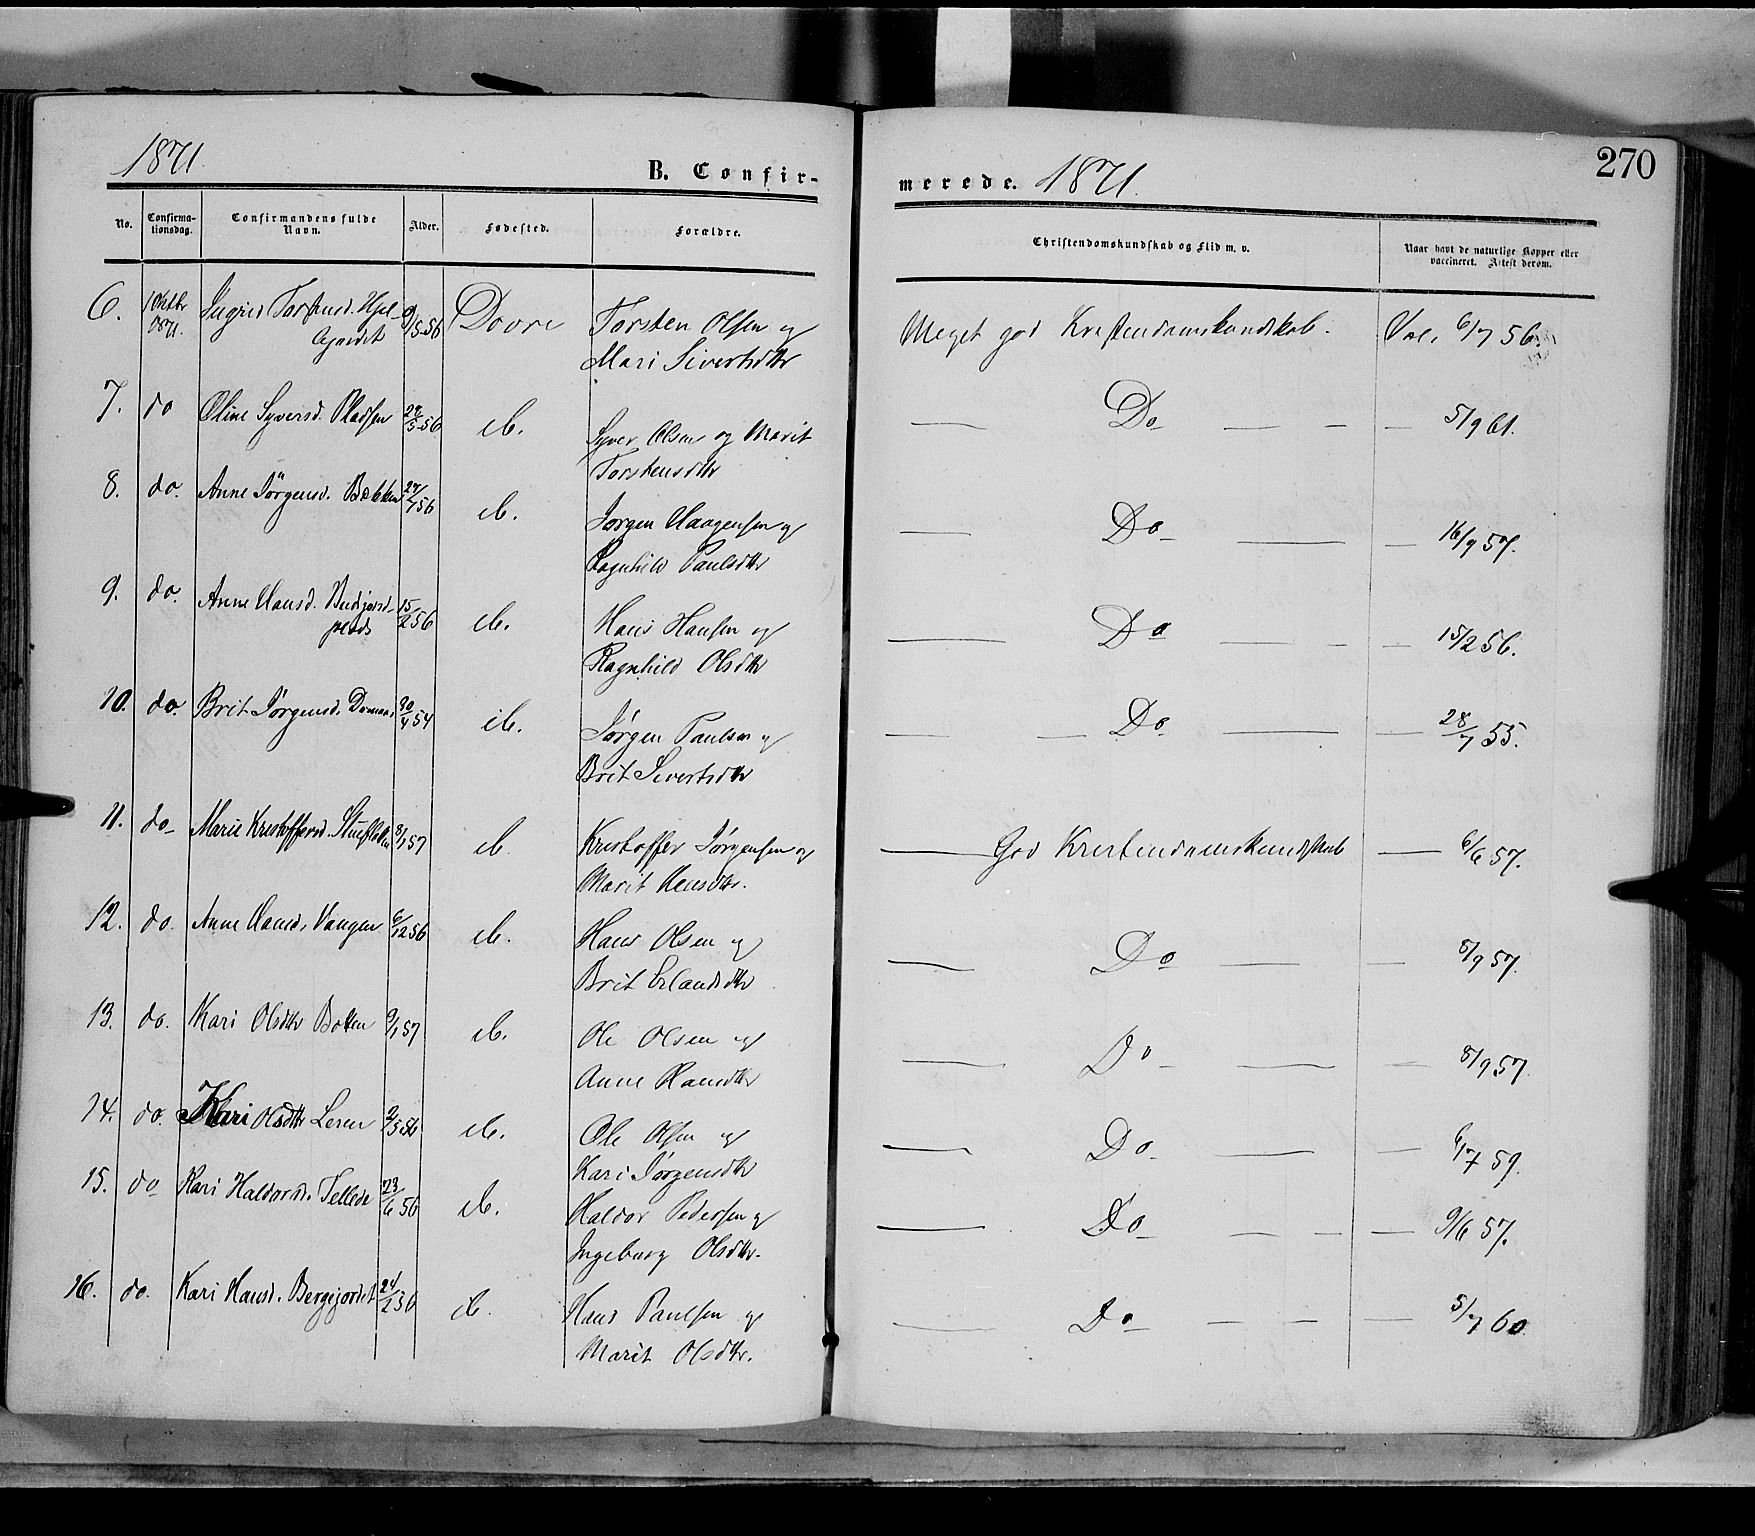 1871
B. Confir-
merede. 1871.
270
No.
Confirma-
tionsdag.
Confirmandens fulde
Navn.
Alder.
Fødested.
Forældre.
Christendomskundskab og Flid m. v.
Naar havt de naturlige Kopper eller
vaccineret. Attest derom.
6. 1 Oktbr Ingrid Torstensd. Hjel- 9/5 56 Dovre Torsten Olsen og Meget god Kristendomskundskab. Vac. 6/7 56.
1871. Mari Sivertsdtr
7. do Oline Syversd. Pladsen 29/5 56 ib. Syver Olsen og Marit Do 5/9 61.
Torstensdtr
8. do. Anne Jörgensd. Bækken 27/7 56 ib. Jørgen Haagensen og Do 16/9 57.
Ragnhild Paulsdtr
9. do. Anne Hansd. 15/2 56 ib. Hans Hansen og Do 15/2 56.
plads Ragnhild Olsdtr
10. do. Brit Jørgensd. 30/4 54 ib. Jørgen Paulsen og Do 28/7 55.
Brit Sivertsdtr
11. do Marie Kristoffersd. Stueflotten 8/1 57 ib. Kristoffer Jørgensen og God Kristendomskundskab 6/6 57.
Marit Hansdtr.
12. do. Anne Hansd. Vangen 6/12 56 ib. Hans Olsen og Do 8/9 57.
Brit Erlandsdtr
13. do. Mari Olsdtr Botten 9/1 57 ib. Ole Olsen og Do 8/9 57.
Anne Hansdtr
14. do. Kari Olsdtr Leren 2/5 56 ib. Ole Olsen og Do 6/7 59.
Kari Jørgensdtr
15. do Kari Haldorsd. 23/6 56 ib. Haldor Pedersen og Do 9/6 57.
Ingeborg Olsdtr.
16. do. Kari Hansd. Bergejordet 24/2 56 ib. Hans Paulsen og Do 5/7 60
Marit Olsdtr.